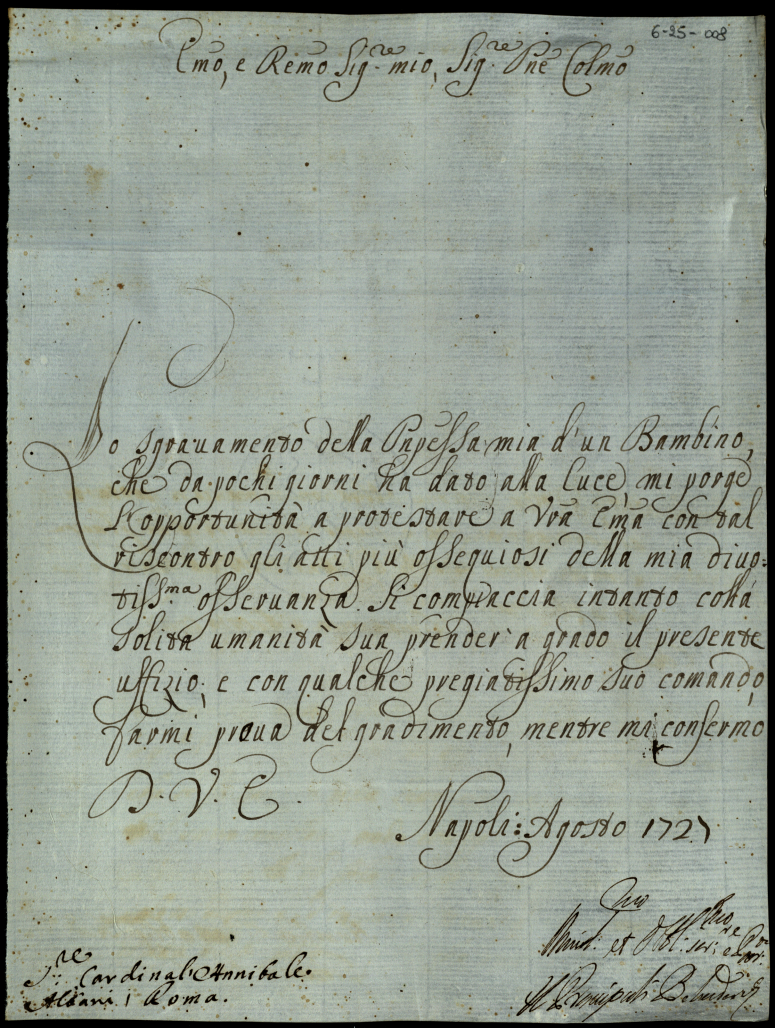 6-25-008
Emo, e Remo Sig.re mio, Sig.re Pne Colmo
Lo sgravamento della Pnpessa mia d'un Bambino,
che da pochi giorni ha dato alla luce, mi porge
l'opportunità a protestare a Vrã Emã con tal
riscontro gli atti più ossequiosi della mia divo=
tiss.ma osservanza. Si compiaccia intanto colla
solita umanità sua prender' a grado il presente
uffizio; e con qualche pregiatissimo suo comando,
farmi prova del gradimento, mentre mi confermo
D. V. E.
Napoli: Agosto 1727
et Obl:
S.re Cardinal'Annibale
Albani / Roma.
Il Principe di